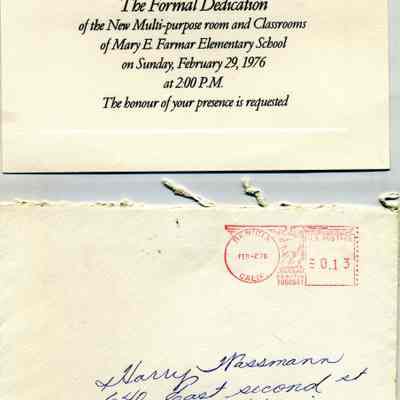 The Formal Dedication
of the New Multi-purpose room and Classrooms
of Mary E. Farmar Elementary School
on Sunday, February 29, 1976
at 2:00 P.M.
The honour of your presence is requested
BENICIA
FEB-2'76
CALIF.
U.S. POSTAGE
0.13
TOGETHER
Harry Wassmann
640 East second st